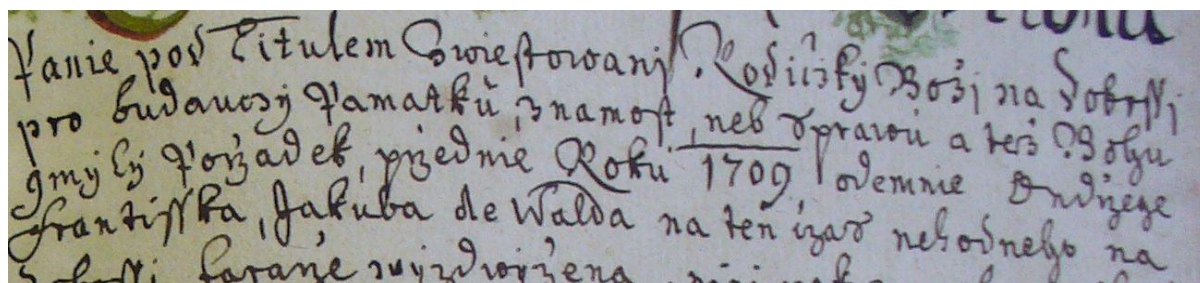 Panie pod Titulem Swiestowanj Rodiczký Bozj na Dobrssj
pro budauczý Pamatků, znamost, neb zprawů a též Bohu
gmýlý Porzadek, przednie Roku 1709 odemnie Ondrzege
Frantisska, Jakuba de Walda na ten czas nehodneho na
Dobrssi farárze wýzdwýzena